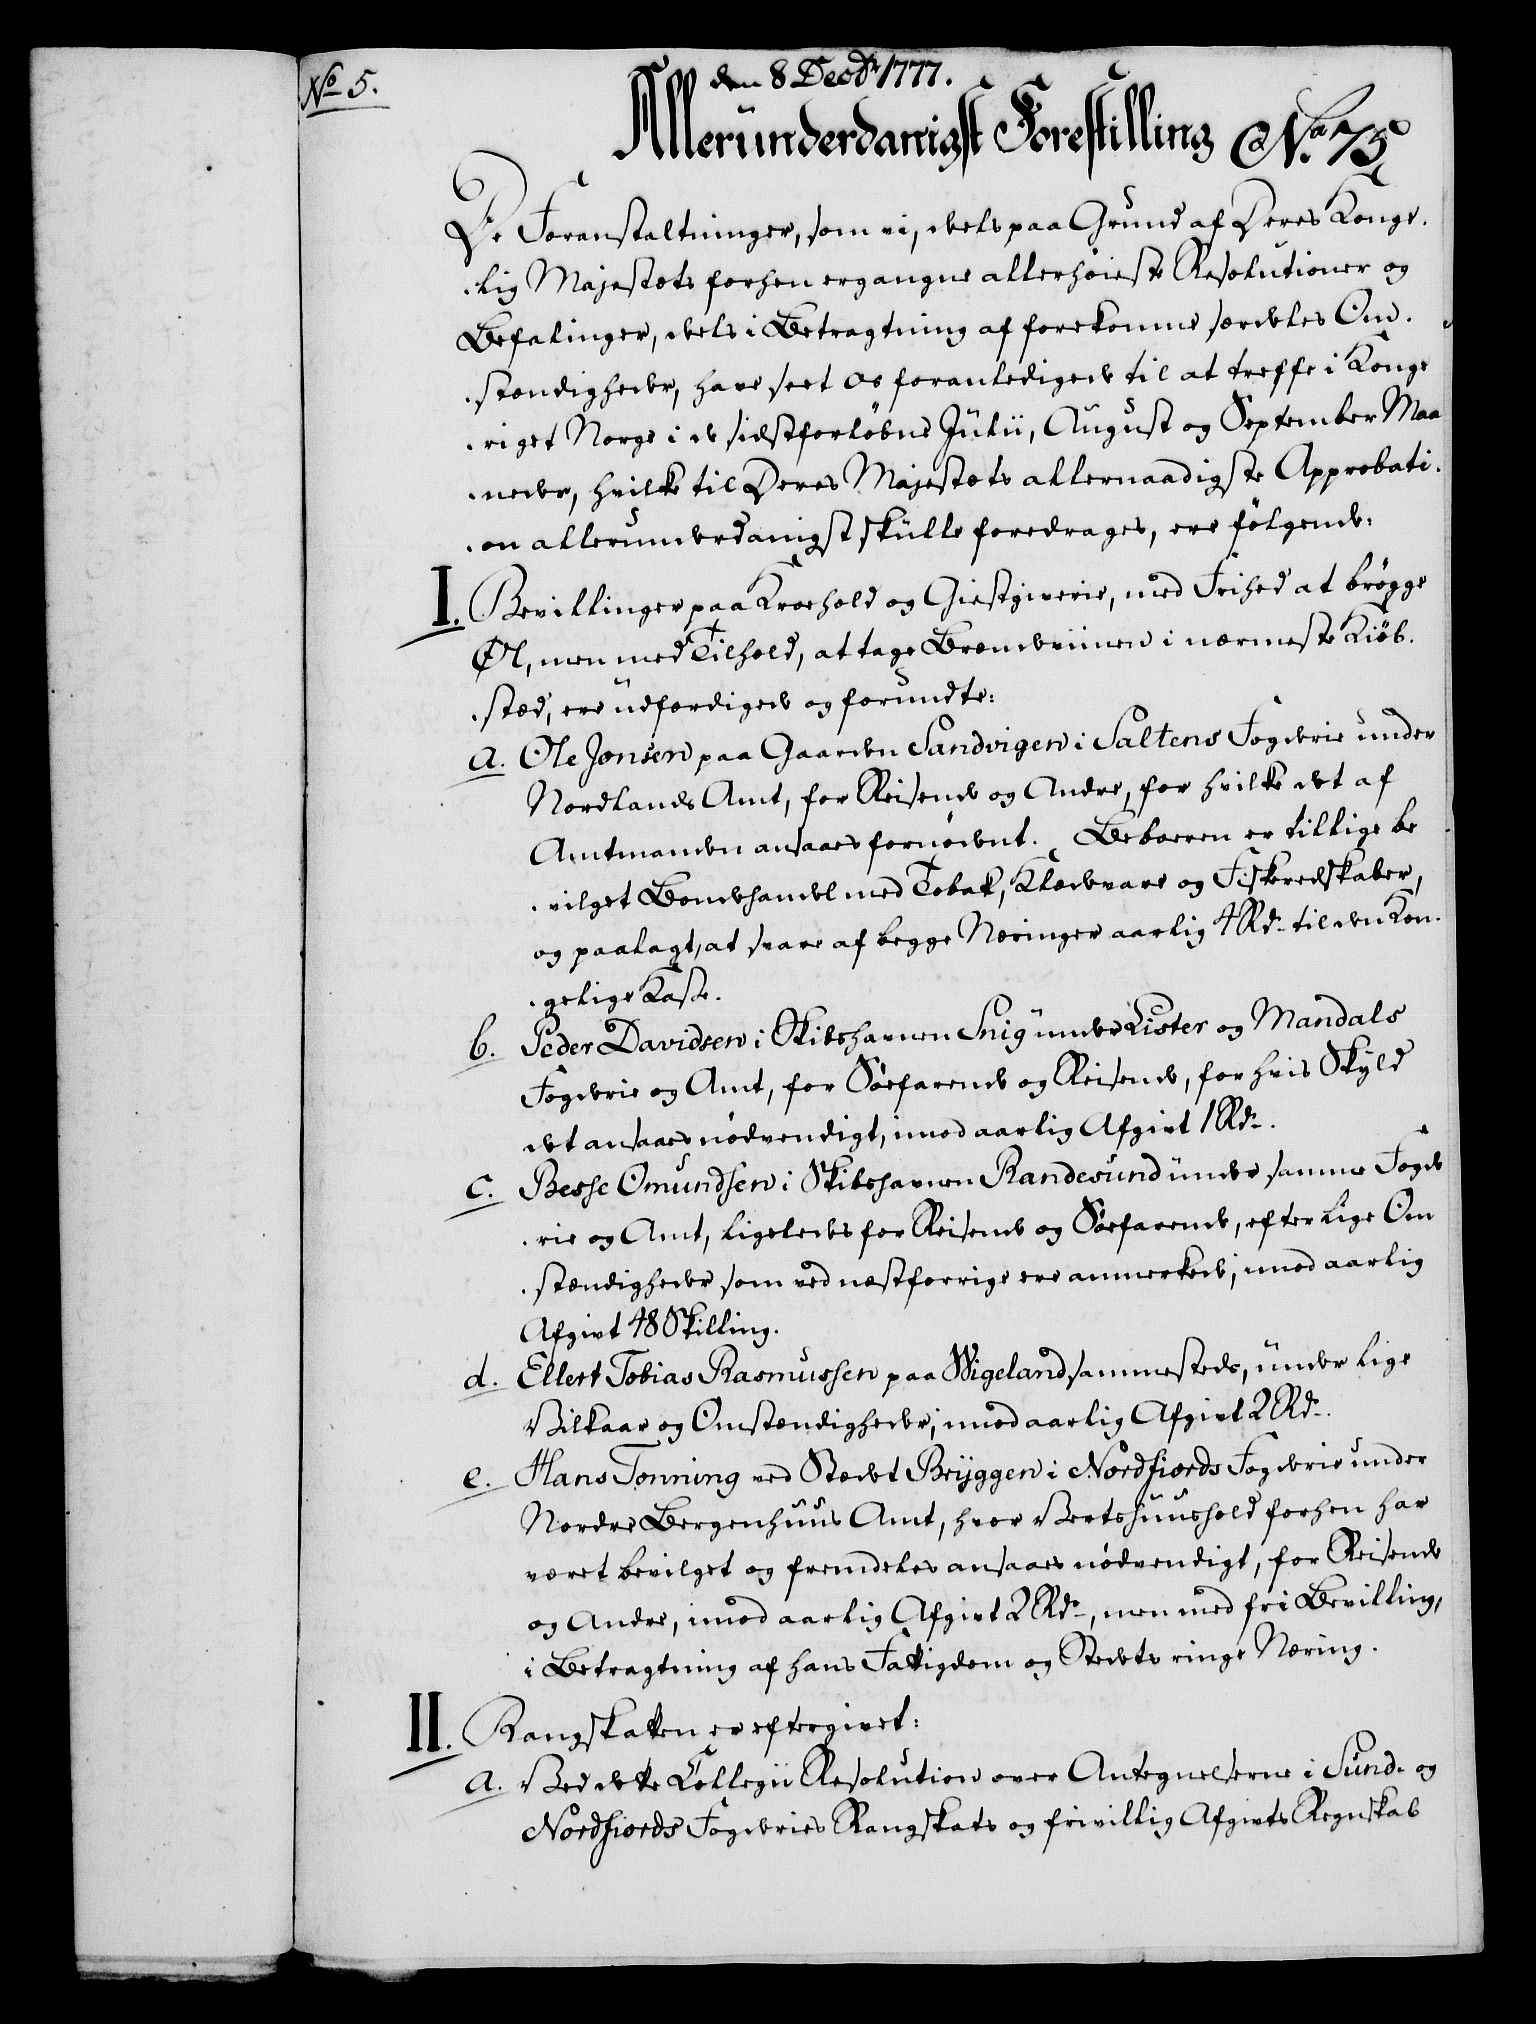 No 5.
den 8 Decbr 1777.
Allerunderdanigst Forestilling No. 75
De Foranstaltninger, som vi, deels paa Grund af Deres Konge-
-lig Majestæts forhen ergangne allerhöieste Resolutioner og
Befalinger, deels i Betragtning af forekomne særdeles Om-
-stændigheder, have seet os foranledigede til at treffe i Konge
-riget Norge i de sidstforløbne Julii, August og September Maa
-neder, hvilke til Deres Majestæts allernaadigste Approbati-
-on allerunderdanigst skulle foredrages, ere følgende:
I. Bevillinger paa Kroehold og Giestgiverie, med Frihed at brögge
Øl, men med Tilhold, at tage Brændeviinen i nærmeste Kiöb-
-stæd, ere udfærdigede og forundte:
a. Ole Jonsen paa Gaarden Sandvigen i Saltens Fogderie under
Nordlands Amt, for Reisende og Andre, for hvilke det af
Amtmanden ansaaes fornödent. Beboeren er tillige be
-vilget Bondehandel med Tobak, Klædevare og Fiskeredskaber,
og paalagt, at svare af begge Næringer aarlig 4 Rd. til den Kon-
-gelige Kasse.
b. Peder Davidsen i Skibshavnen Snig under Lister og Mandals
Fogderie og Amt, for Söefarende og Reisende, for hvis Skyld
det ansaaes nödvendigt, imod aarlig Afgivt 1 Rd.
c. Besse Omundsen i Skibshavnen Randesund under samme Fogde
-rie og Amt, ligeledes for Reisende og Söefarende, efter lige Om
-stændigheder som ved næstforrige ere anmerkede, imod aarlig
Afgivt 48 Skilling.
d. Ellert Tobias Rasmussen paa Wigeland sammesteds, under lige
Vilkaar og Omstændigheder, imod aarlig Afgivt 2 Rd.
e. Hans Tonning ved Stædet Bryggen i Nordfiords Fogderie under
Nordre Bergenhuus Amt, hvor Vertshuushold forhen har
været bevilget og fremdeles ansaaes nödvendigt, for Reisende
og Andre, imod aarlig Afgivt 2 Rd., men med fri Bevilling,
i Betragtning af hans Fattigdom og Stedets ringe Næring.
II. Rangskatten er eftergivet:
a. Ved dette Collegii Resolution over Antegnelserne i Sund- og
Nordfiords Fogderies Rangskats og frivillig Afgivts Regnskab